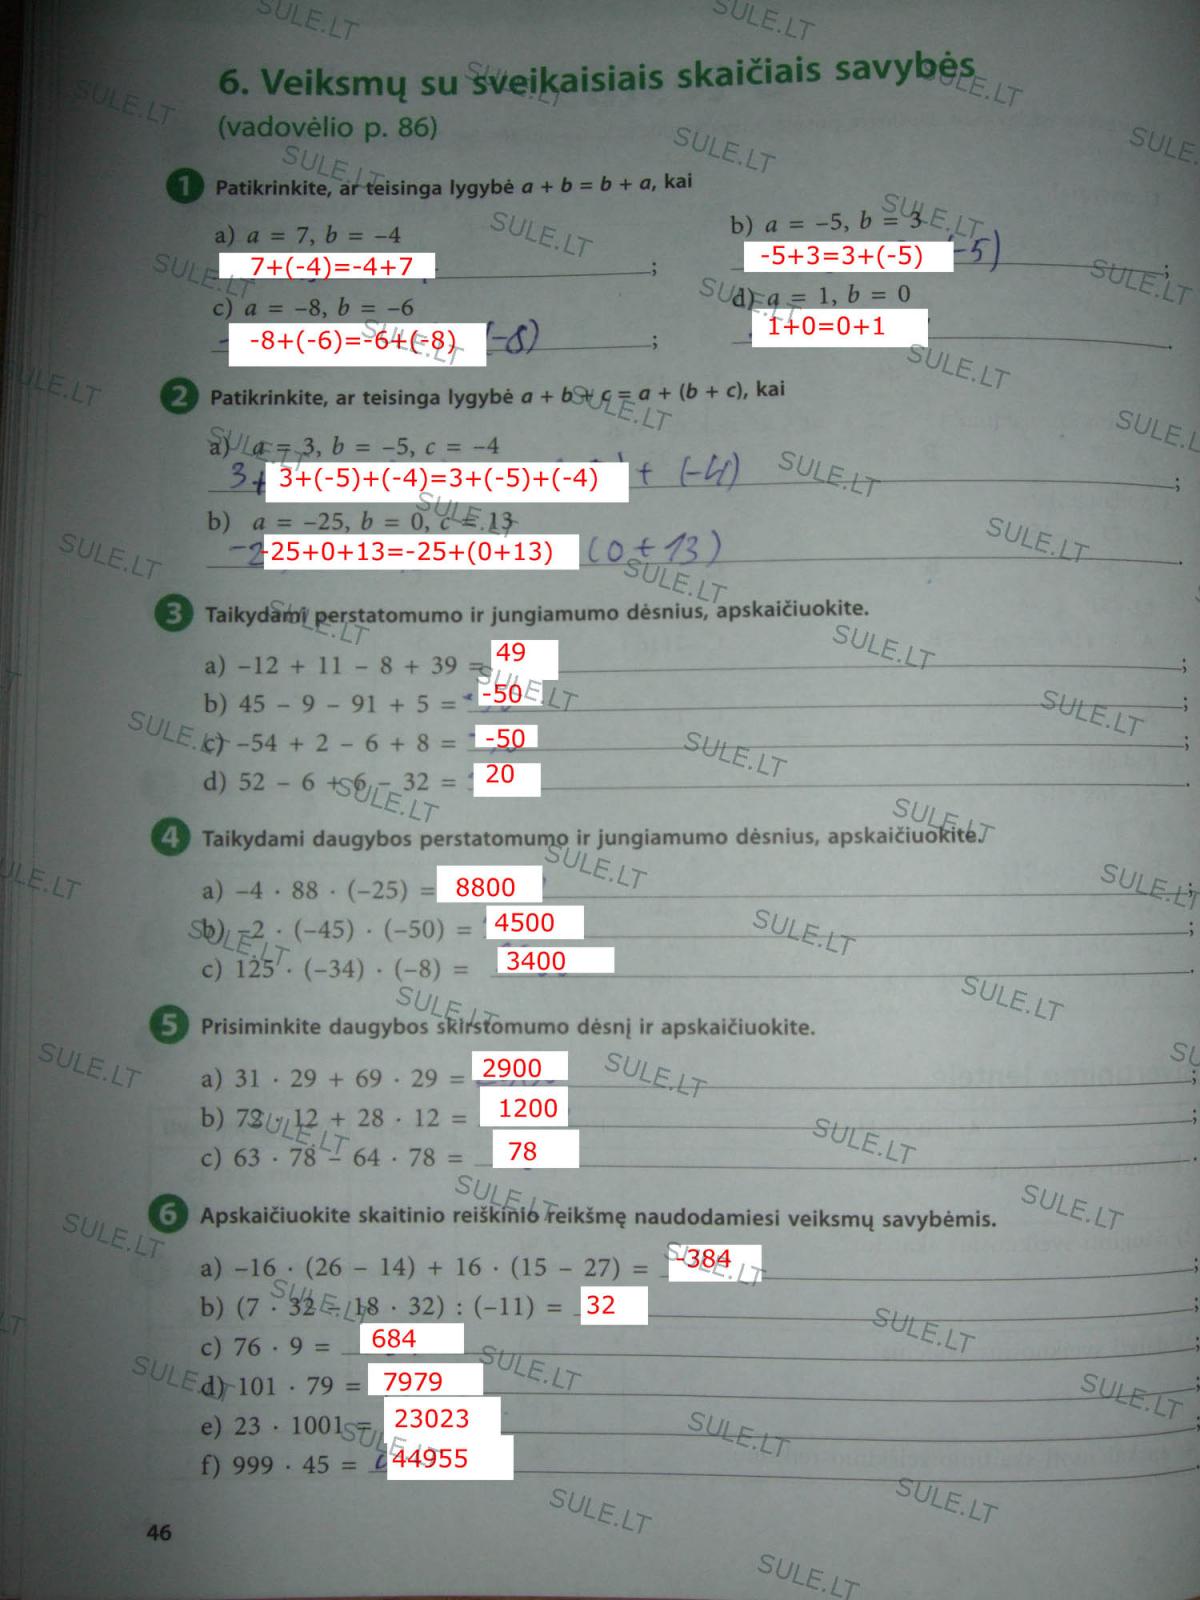 6. Veiksmų su sveikaisiais skaičiais savybės
(vadovėlio p. 86)
1 Patikrinkite, ar teisinga lygybė a + b = b + a, kai
a) a = 7, b = –4
7+(-4)=-4+7 ;
b) a = –5, b = 3
-5+3=3+(-5) -5) ;
c) a = –8, b = –6
-8+(-6)=-6+(-8) (-8) ;
d) a = 1, b = 0
1+0=0+1 .
2 Patikrinkite, ar teisinga lygybė a + b + c = a + (b + c), kai
a) a = 3, b = –5, c = –4
3+ 3+(-5)+(-4)=3+(-5)+(-4) + (-4) ;
b) a = –25, b = 0, c = 13
-25+0+13=-25+(0+13) (0+13) .
3 Taikydami perstatomumo ir jungiamumo dėsnius, apskaičiuokite.
a) –12 + 11 – 8 + 39 = 49 ;
b) 45 – 9 – 91 + 5 = -50 ;
c) –54 + 2 – 6 + 8 = -50 ;
d) 52 – 6 + 6 – 32 = 20 .
4 Taikydami daugybos perstatomumo ir jungiamumo dėsnius, apskaičiuokite.
a) –4 · 88 · (–25) = 8800 ;
b) –2 · (–45) · (–50) = 4500 ;
c) 125 · (–34) · (–8) = 3400 .
5 Prisiminkite daugybos skirstomumo dėsnį ir apskaičiuokite.
a) 31 · 29 + 69 · 29 = 2900 ;
b) 72 · 12 + 28 · 12 = 1200 ;
c) 63 · 78 – 64 · 78 = 78 .
6 Apskaičiuokite skaitinio reiškinio reikšmę naudodamiesi veiksmų savybėmis.
a) –16 · (26 – 14) + 16 · (15 – 27) = -384 ;
b) (7 · 32 – 18 · 32) : (–11) = 32 ;
c) 76 · 9 = 684 ;
d) 101 · 79 = 7979 ;
e) 23 · 1001 = 23023 ;
f) 999 · 45 = 44955 .
46
SULE.LT